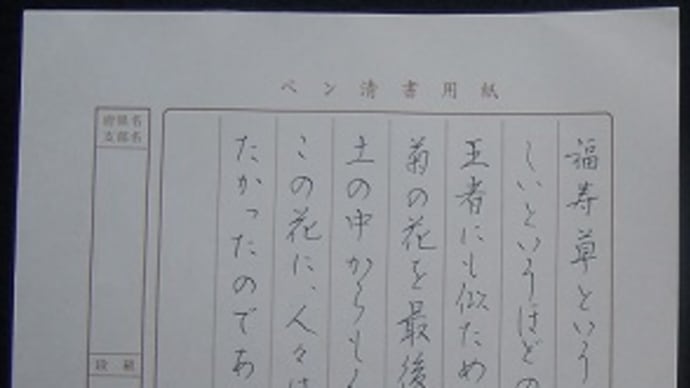 ペン清書用紙
福寿草という
しいというほどの
王者にも似ため
菊の花を最後
土の中からもく
この花に、人々は
たかったのであ
府県名
支部名
段級